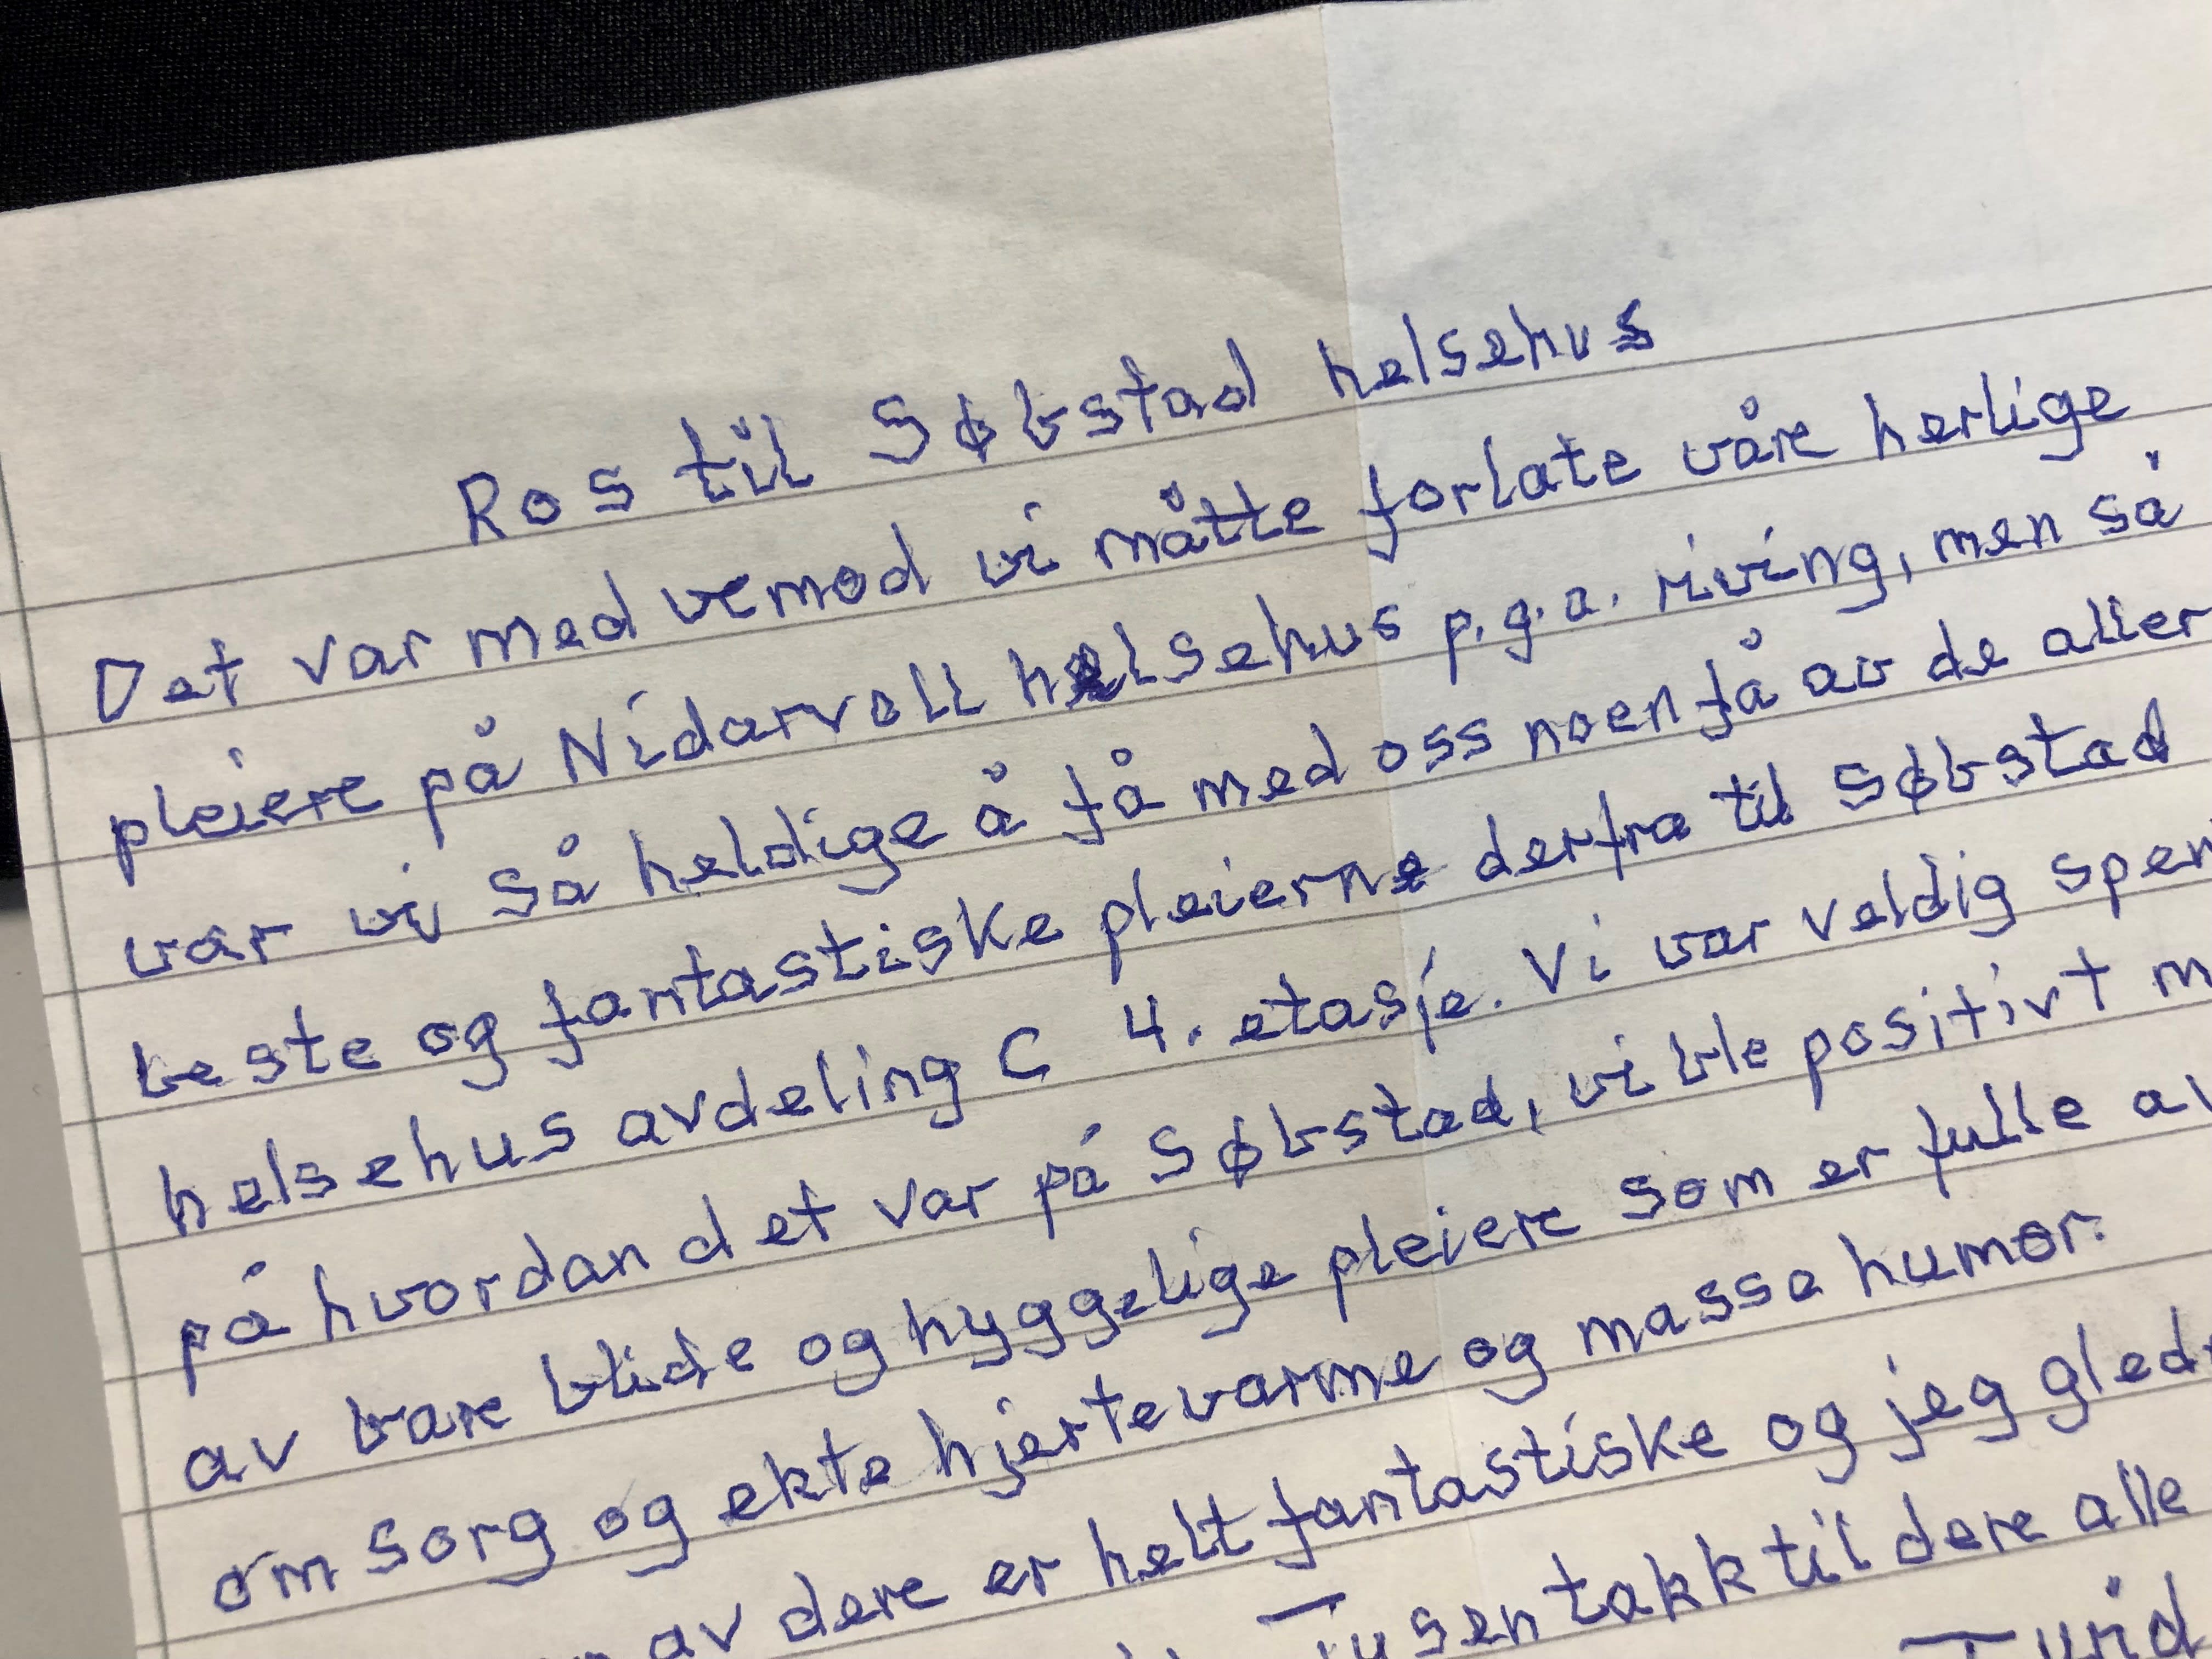 Ros til Søbstad helsehus
Det var med vemod vi måtte forlate våre herlige
pleiere på Nidarvoll helsehus p.g.a. riving, men så
var vi så heldige å få med oss noen få av de aller
beste og fantastiske pleierne derfra til Søbstad
helsehus avdeling C 4. etasje. Vi var veldig
på hvordan det var på Søbstad, vi ble positivt
av bare blide og hyggelige pleiere som er fulle av
omsorg og ekte hjertevarme og masse humor.
av dere er helt fantastiske og jeg
Tusen takk til dere alle
Turid